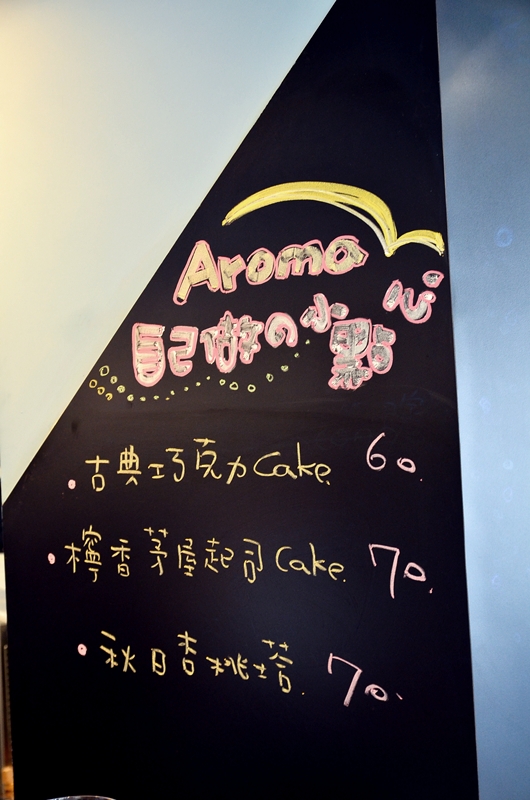 Aroma
自己做の小點心
古典巧克力Cake. 60.
檸香茅屋起司Cake. 70.
秋日杏桃塔. 70.